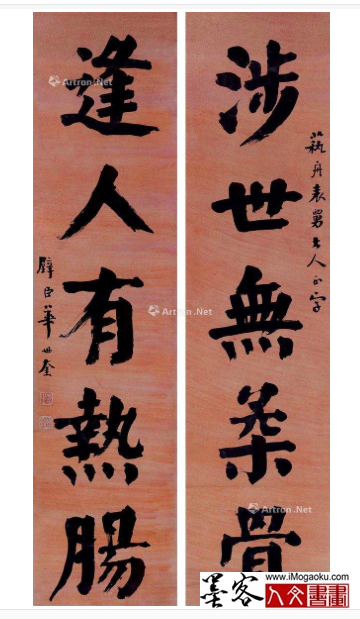 涉世無柔骨
舟表舅大人正字
逢人有熱腸
璧臣華世奎
Artron.Net
Artron.Net
Artron.Net
www.iMogaoku.com
墨客
人文書畫